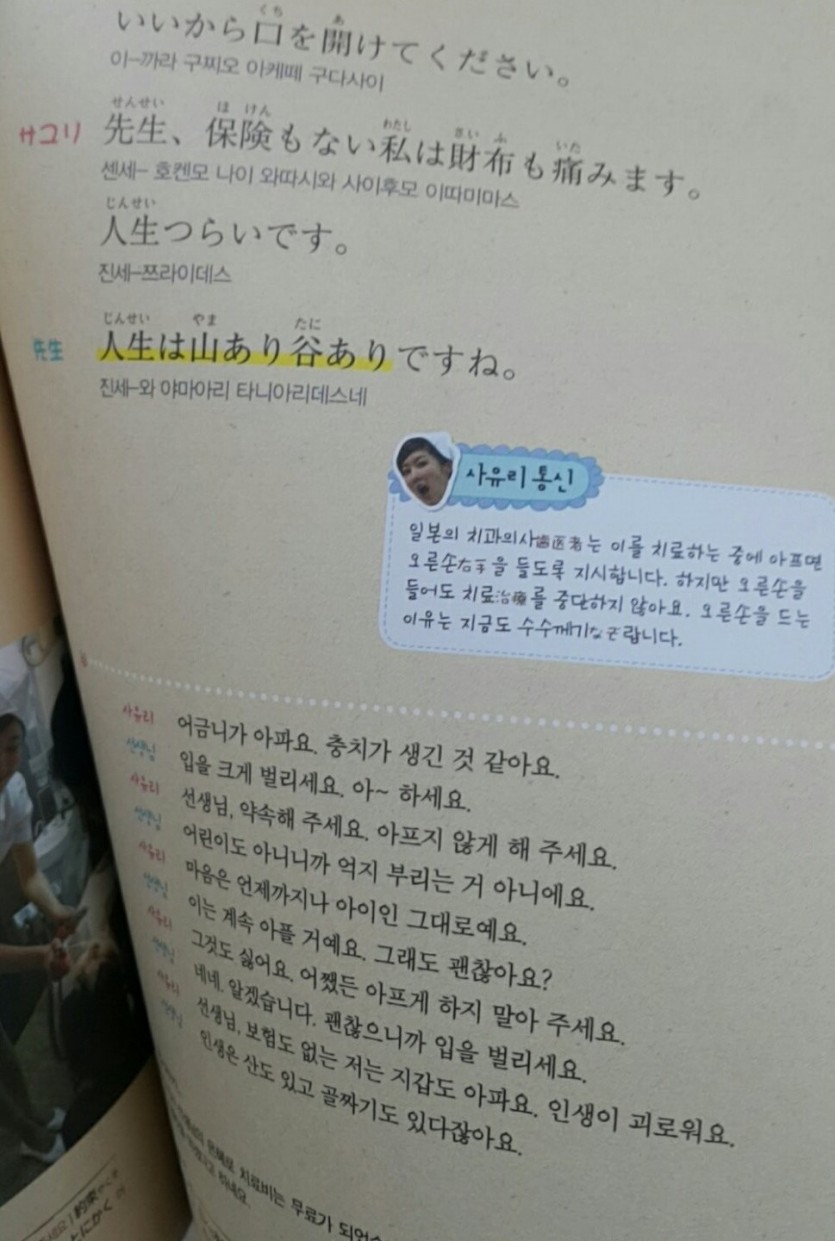 いいから口を開けてください。
くち あ
이-까라 구찌오 아케떼 구다사이
せんせい ほ けん わたし さい ふ いた
サユリ 先生、保険もない私は財布も痛みます。
센세- 호켄모 나이 와따시와 사이후모 이따미마스
じんせい
人生つらいです。
진세-쯔라이데스
じんせい やま たに
先生 人生は山あり谷ありですね。
진세-와 야마아리 타니아리데스네
사유리 통신
일본의 치과의사歯医者는 이를 치료하는 중에 아프면
오른손右手을 들도록 지시합니다. 하지만 오른손을
들어도 치료治療를 중단하지 않아요. 오른손을 드는
이유는 지금도 수수께끼なぞ랍니다.
사유리 어금니가 아파요. 충치가 생긴 것 같아요.
선생님 입을 크게 벌리세요. 아~ 하세요.
사유리 선생님, 약속해 주세요. 아프지 않게 해 주세요.
선생님 어린이도 아니니까 억지 부리는 거 아니에요.
사유리 마음은 언제까지나 아이인 그대로예요.
선생님 이는 계속 아플 거예요. 그래도 괜찮아요?
사유리 그것도 싫어요. 어쨌든 아프게 하지 말아 주세요.
선생님 네네. 알겠습니다. 괜찮으니까 입을 벌리세요.
사유리 선생님, 보험도 없는 저는 지갑도 아파요. 인생이 괴로워요.
선생님 인생은 산도 있고 골짜기도 있다잖아요.
치료비는 무료가 되었